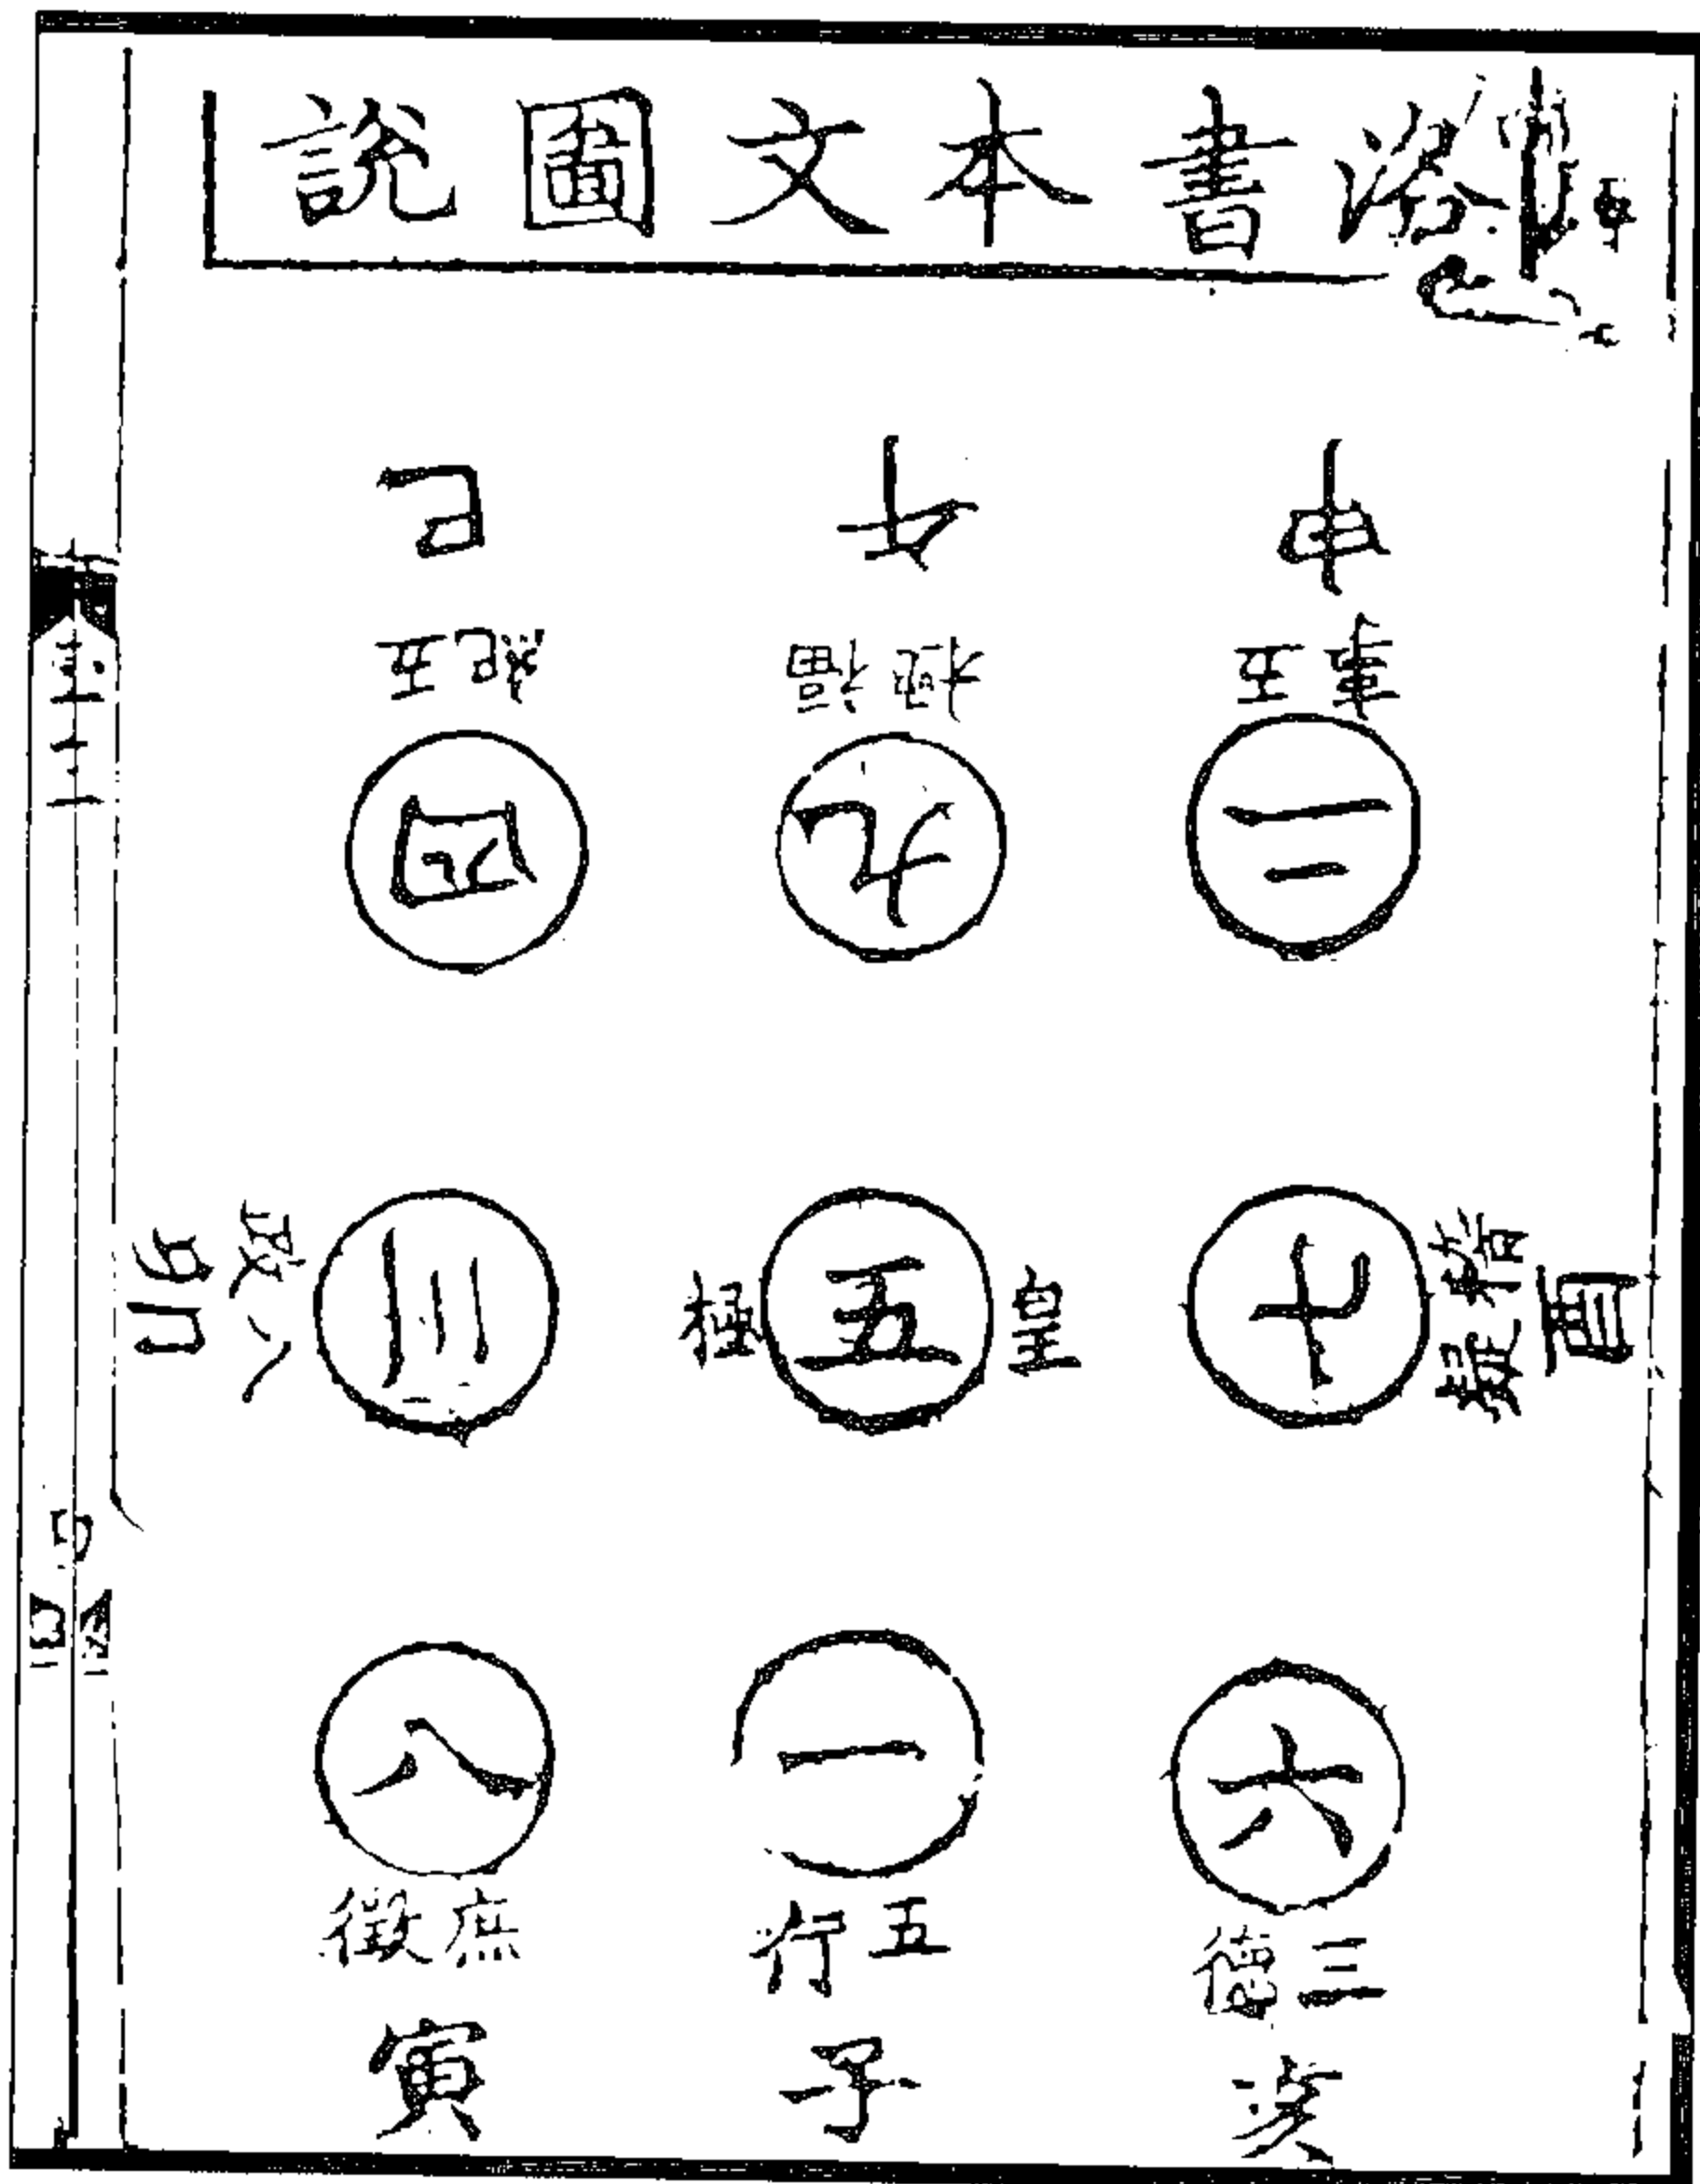 洛書本文圖說
申
午
巳
五事
福極
五紀
二
九
四
酉
稽疑
七
皇
五
極
三
八政
卯
六
一
八
三德
五行
庶徵
亥
子
寅